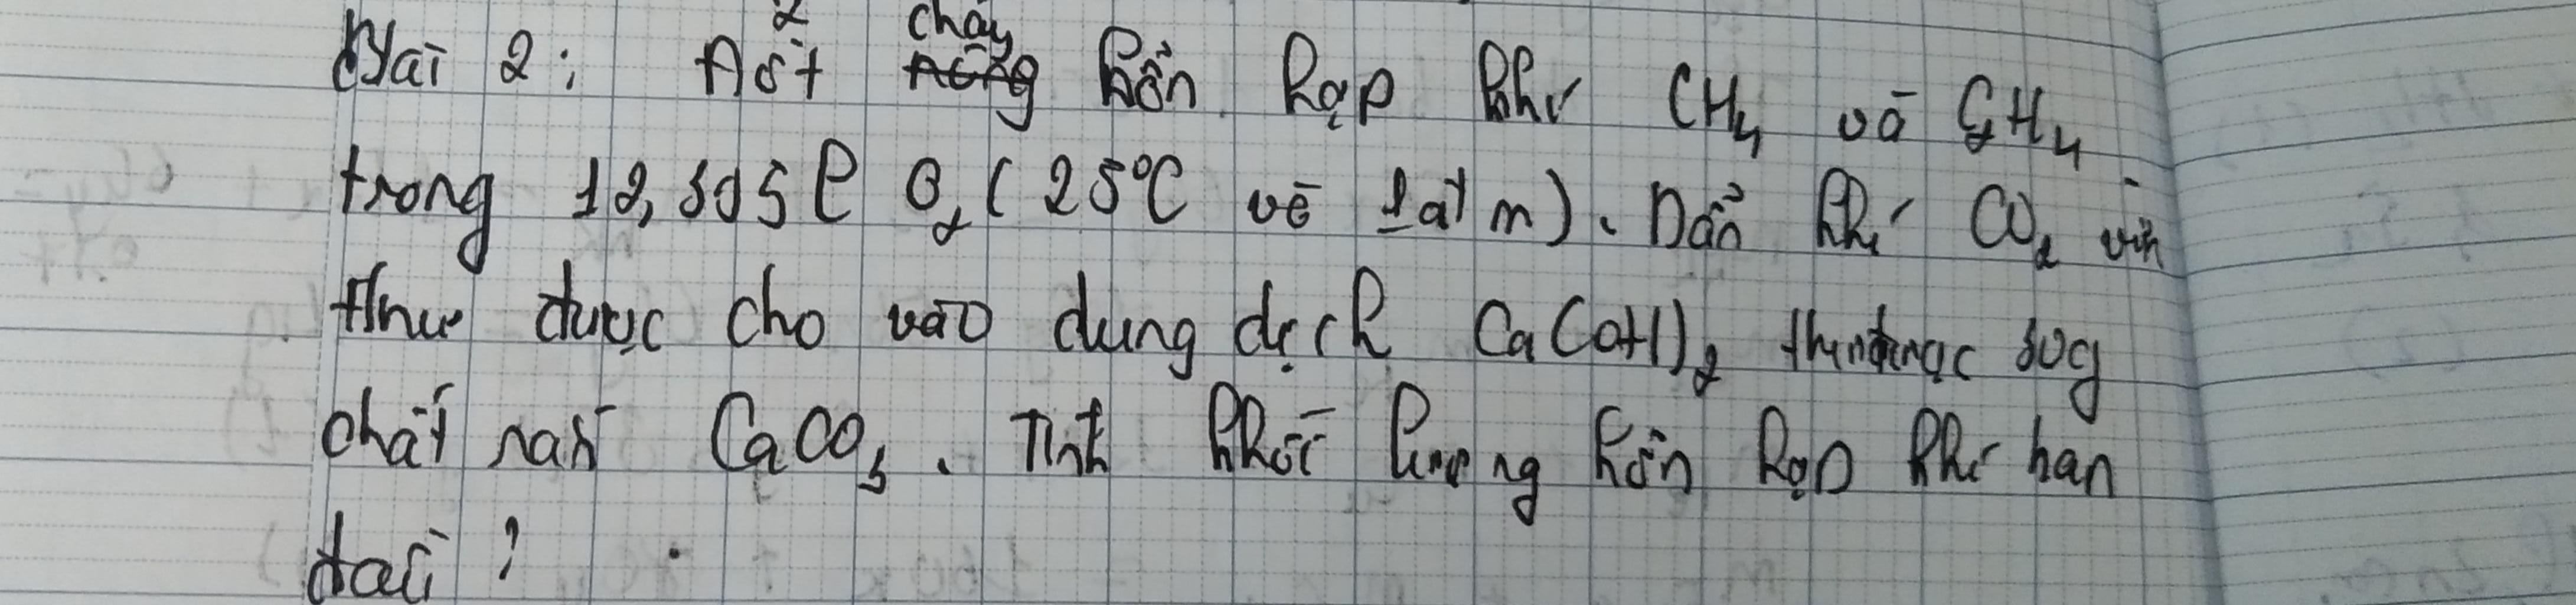 Bài 2: Đốt cháy hỗn hợp khí CH4 và C2H4
trong 12,395l O2 (25°C và 1atm). Dẫn khí CO2 vừa
thu được cho vào dung dịch Ca(OH)2 thu được 30g
chất rắn CaCO3. Tính khối lượng hỗn hợp khí ban
đầu?